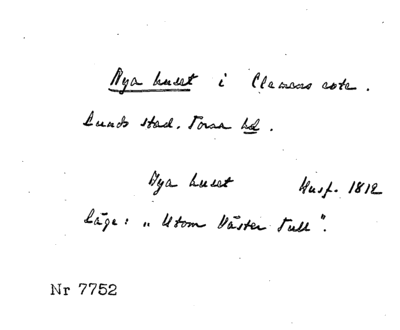 Nya huset i Clemens rote.
Lunds stad. Torna hd.
Nya huset Husf. 1812
Läge: „Utom Väster Tull".
Nr 7752